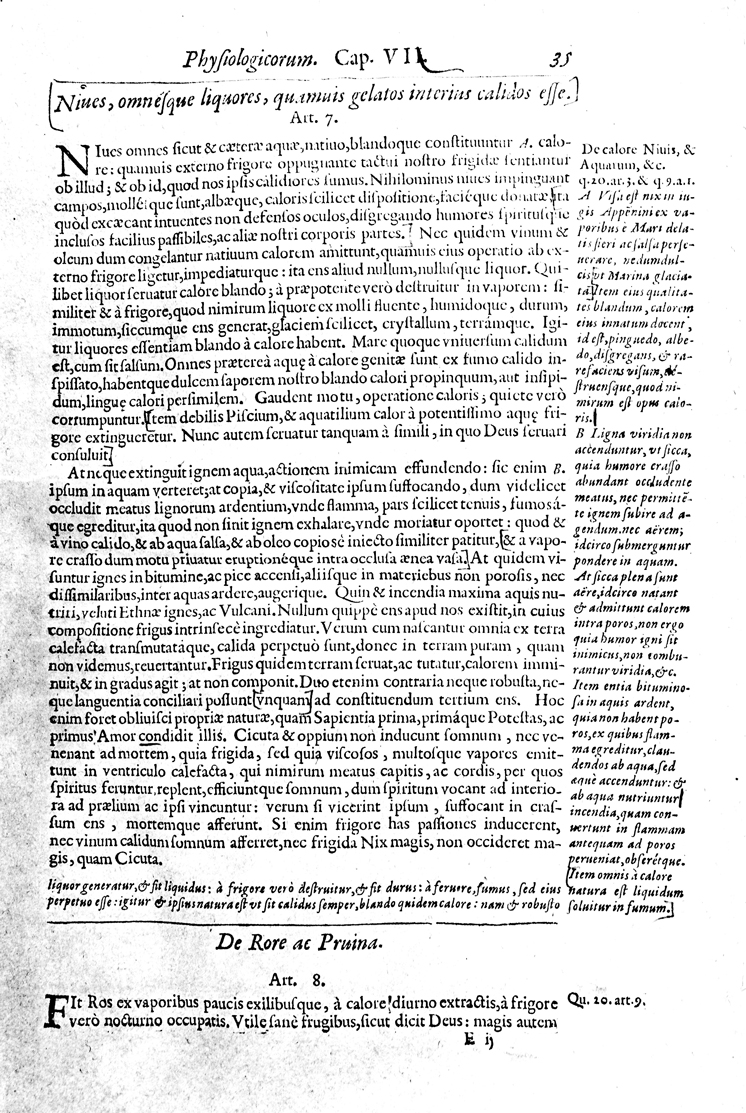 Physiologicorum. Cap. VII
35
Niues, omnésque liquores, quamuis gelatos interius calidos esse.
Art. 7.
NIues omnes sicut & cæteræ aquæ, natiuo, blandoque constituuntur A. calo-
re: quamuis externo frigore oppugnante tactui nostro frigidæ sentiantur
ob illud; & ob id, quod nos ipsis calidiores sumus. Nihilominus niues impinguant
campos, mollésque sunt, albæque, caloris scilicet dispositione, faciéque donatæ
quòd excæcant intuentes non defensos oculos, disgregando humores spiritusque
inclusos facilius passibiles, ac aliæ nostri corporis partes. Nec quidem vinum &
oleum dum congelantur natiuum calorem amittunt, quamuis eius operatio ab ex-
terno frigore ligetur, impediaturque: ita ens aliud nullum, nullusque liquor. Qui-
libet liquor seruatur calore blando; à præpotente verò destruitur in vaporem: si-
militer & à frigore, quod nimirum liquore ex molli fluente, humidoque, durum,
immotum, siccumque ens generat, glaciem scilicet, crystallum, terrámque. Igi-
tur liquores essentiam blando à calore habent. Mare quoque vniuersum calidum
est, cum sit salsum. Omnes prætereà aquę à calore genitæ sunt ex fumo calido in-
spissato, habentque dulcem saporem nostro blando calori propinquum, aut insipi-
dum, linguę calori persimilem. Gaudent motu, operatione caloris; quiete verò
corrumpuntur. Item debilis Piscium, & aquatilium calor à potentissimo aquę fri-
gore extingueretur. Nunc autem seruatur tanquam à simili, in quo Deus seruari
consuluit.
At neque extinguit ignem aqua, actionem inimicam effundendo: sic enim B.
ipsum in aquam verteret; at copia, & viscositate ipsum suffocando, dum videlicet
occludit meatus lignorum ardentium, vnde flamma, pars scilicet tenuis, fumosá-
que egreditur, ita quod non sinit ignem exhalare, vnde moriatur oportet: quod &
à vino calido, & ab aqua salsa, & ab oleo copiosè iniecto similiter patitur, & a vapo-
re crasso dum motu priuatur eruptionéque intra occlusa ænea vasa. At quidem vi-
suntur ignes in bitumine, ac pice accensi, aliisque in materiebus non porosis, nec
dissimilaribus, inter aquas ardere, augerique. Quin & incendia maxima aquis nu-
triri, veluti Ethnæ ignes, ac Vulcani. Nullum quippè ens apud nos existit, in cuius
compositione frigus intrinsecè ingrediatur. Verum cum nascantur omnia ex terra
calefacta transmutatáque, calida perpetuò sunt, donec in terram puram, quam
non videmus, reuertantur. Frigus quidem terram seruat, ac tutatur, calorem immi-
nuit, & in gradus agit; at non componit. Duo etenim contraria neque robusta, ne-
que languentia conciliari possunt vnquam ad constituendum tertium ens. Hoc
enim foret obliuisci propriæ naturæ, quam Sapientia prima, primáque Potestas, ac
primus Amor condidit illis. Cicuta & oppium non inducunt somnum, nec ve-
nenant ad mortem, quia frigida, sed quia viscosos, multosque vapores emit-
tunt in ventriculo calefacta, qui nimirum meatus capitis, ac cordis, per quos
spiritus feruntur, replent, efficiuntque somnum, dum spiritum vocant ad interio-
ra ad prælium ac ipsi vincuntur: verum si vicerint ipsum, suffocant in cras-
sum ens, mortemque afferunt. Si enim frigore has passiones inducerent,
nec vinum calidum somnum afferret, nec frigida Nix magis, non occideret ma-
gis, quam Cicuta.
De calore Niuis, &
Aquarum, &c.
q. 20. ar. 3. & q. 9. a. 1.
A Visa est nix in iu-
gis Appēnini ex va-
poribus è Mari dela-
tis fieri ac salsa perse-
uerare, nedum dul-
cis, vt Marina glacia-
ta. Item eius qualita-
tes blandum, calorem
eius innatum docent,
id est, pinguedo, albe-
do, disgregans, & ra-
refaciens visum, de-
struensque, quod ni-
mirum est opus calo-
ris.
B Ligna viridia non
accenduntur, vt sicca,
quia humore crasso
abundant occludente
meatus, nec permittē-
te ignem subire ad a-
gendum. nec aërem;
idcirco submerguntur
pondere in aquam.
At sicca plena sunt
aëre, idcirco natant
& admittunt calorem
intra poros, non ergo
quia humor igni sit
inimicus, non combu-
rantur viridia, &c.
Item entia bitumino-
sa in aquis ardent,
quia non habent po-
ros, ex quibus flam-
ma egreditur, clau-
dendos ab aqua, sed
æquè accenduntur: &
ab aqua nutriuntur
incendia, quam con-
uertunt in flammam
antequam ad poros
perueniat, obserétque.
Item omnis à calore
natura est liquidum
soluitur in fumum.
liquor generatur, & fit liquidus: à frigore verò destruitur, & fit durus: à feruore, fumus, sed eius
perpetuo esse: igitur & ipsius natura est vt sit calidus semper, blando quidem calore: nam & robusto
De Rore ac Pruina.
Art. 8.
FIt Ros ex vaporibus paucis exilibusque, à calore diurno extractis, à frigore
verò nocturno occupatis. Vtile sanè frugibus, sicut dicit Deus: magis autem
Qu. 20. art. 9.
E ij